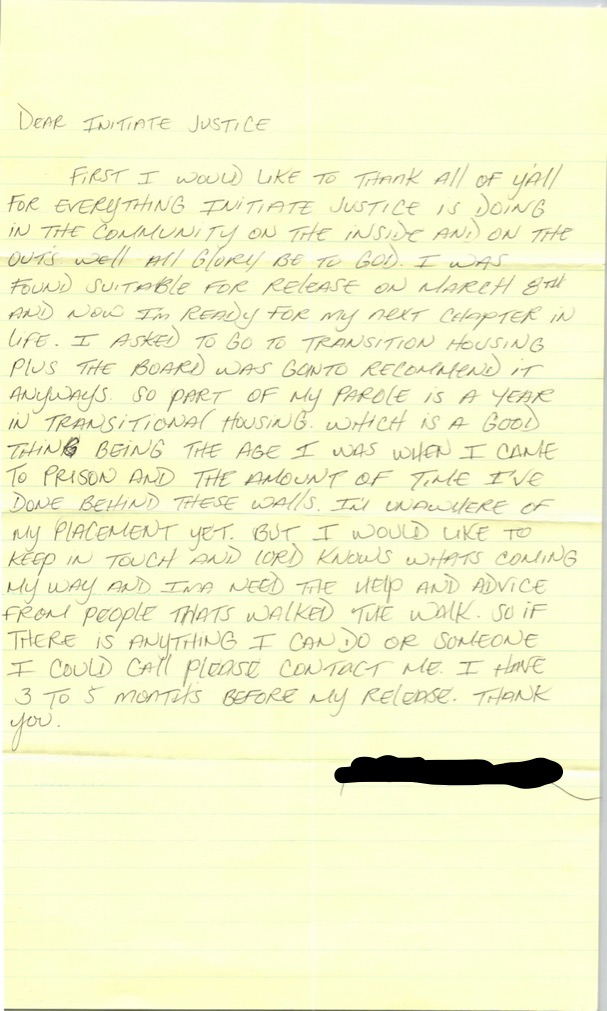 DEAR INITIATE JUSTICE
FIRST I WOULD LIKE TO THANK All OF y'All
FOR EVERYTHING INITIATE JUSTICE IS DOING
IN THE COMMUNITY ON THE INSIDE AND ON THE
OUT'S. WEll All GlORY BE TO GOD. I WAS
FOUND SUITABLE FOR RELEASE ON MARCH 8TH
AND NOW I'm READY FOR MY NEXT CHAPTER IN
LIFE. I ASKED TO GO TO TRANSITION HOUSING
PLUS THE BOARD WAS GONTO RECOMMEND IT
ANYWAYS. SO PART OF MY PAROLE IS A YEAR
IN TRANSITIONAL HOUSING. WHICH IS A GOOD
THING BEING THE AGE I WAS WHEN I CAME
TO PRISON AND THE AMOUNT OF TIME I'VE
DONE BEHIND THESE WAllS. I'M UNAWHERE OF
MY PLACEMENT YET. BUT I WOULD LIKE TO
KEEP IN TOUCH AND LORD KNOWS WHATS COMING
MY WAY AND IMA NEED THE HElP AND ADVICE
FROM PEOPLE THATS WALKED THE WALK. SO IF
THERE IS ANYTHING I CAN DO OR SOMEONE
I COULD CAll PLEASE CONTACT ME. I HAVE
3 TO 5 MONTHS BEFORE MY RElEASE. THANK
yOU.